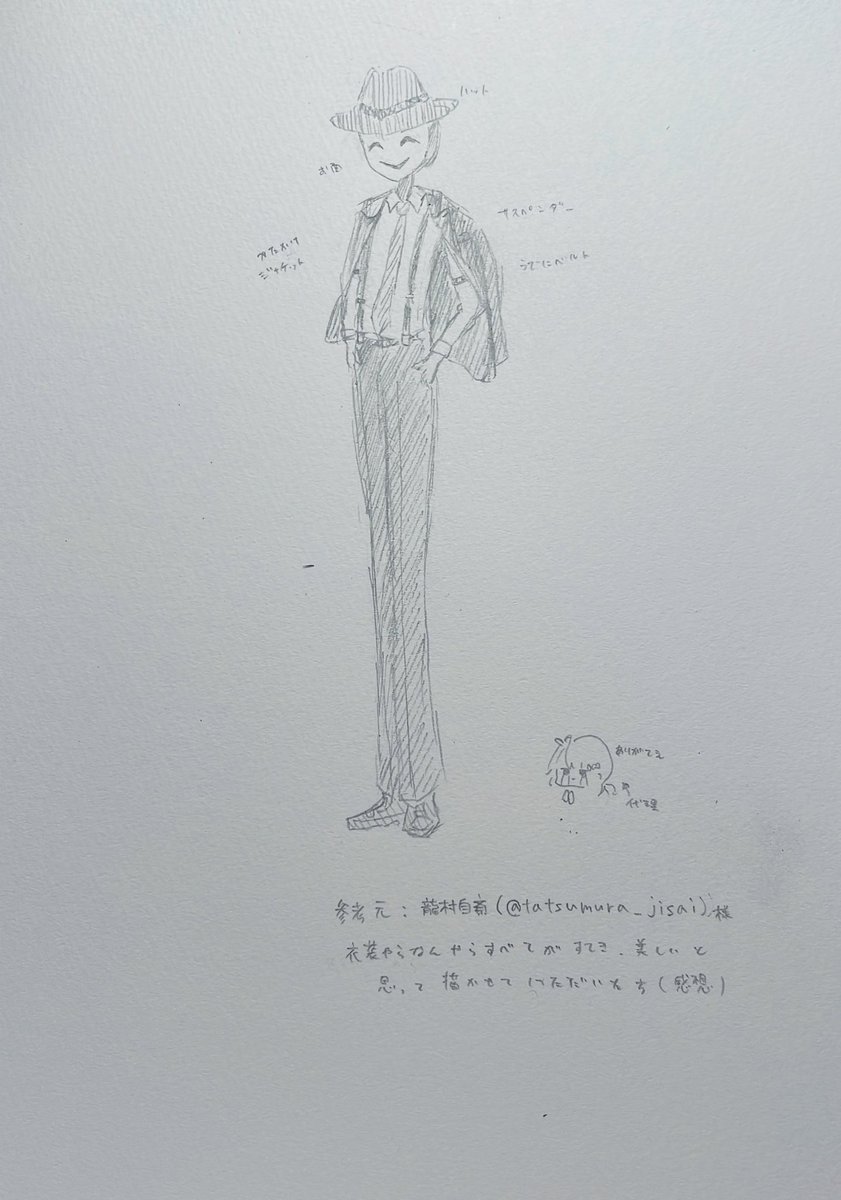 ハット
お面
サスペンダー
かたがけ
ジャケット
うでにベルト
ありがてえ
代理
参考元：龍村自斎(@tatsumura_jisai)様
衣装やらなんやらすべてがすてき、美しいと
思って描かせていただいもち(感想)